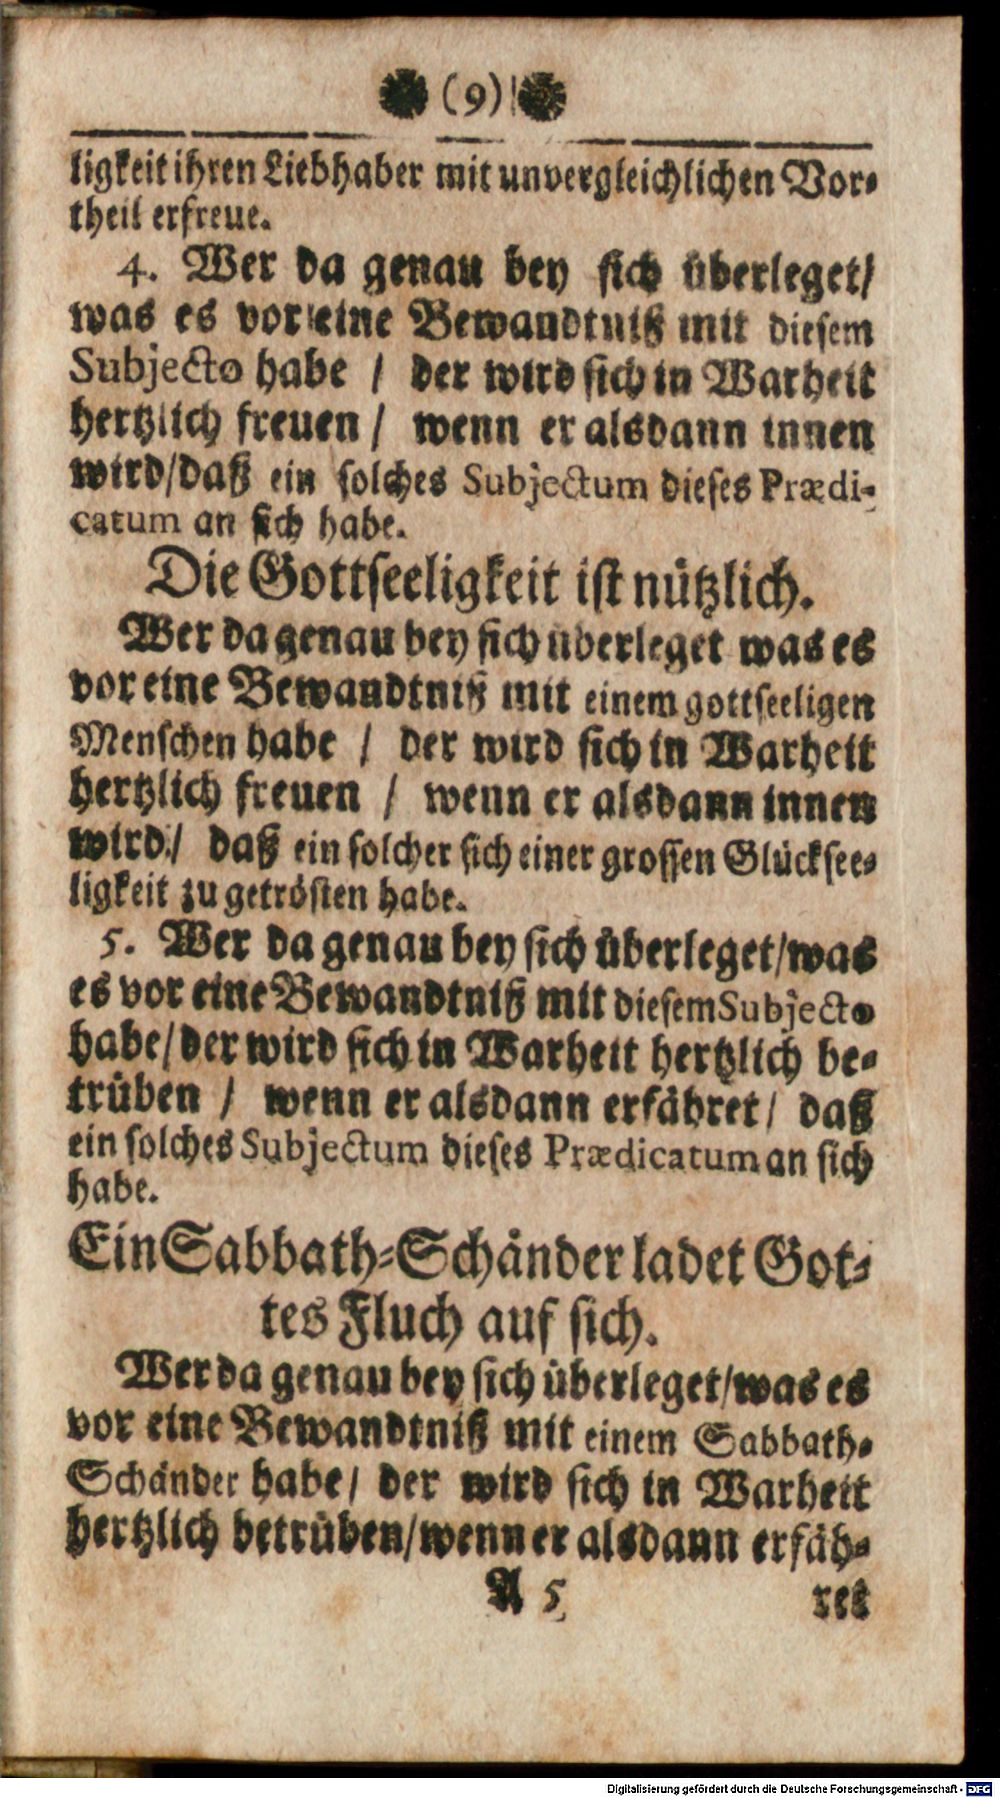 (9)
ligkeit ihren Liebhaber mit unvergleichlichen Vor-
theil erfreue.
4. Wer da genau bey sich überleget/
was es vor eine Bewandtniß mit diesem
Subjecto habe / der wird sich in Warheit
hertzlich freuen / wenn er alsdann innen
wird/daß ein solches Subjectum dieses Prædi-
catum an sich habe.
Die Gottseeligkeit ist nützlich.
Wer da genau bey sich überleget was es
vor eine Bewandtniß mit einem gottseeligen
Menschen habe / der wird sich in Warheit
hertzlich freuen / wenn er alsdann innen
wird/ daß ein solcher sich einer grossen Glücksee-
ligkeit zu getrösten habe.
5. Wer da genau bey sich überleget/was
es vor eine Bewandtniß mit diesem Subjecto
habe/der wird sich in Warheit hertzlich be-
trüben / wenn er alsdann erfähret/ daß
ein solches Subjectum dieses Prædicatum an sich
habe.
Ein Sabbath-Schänder ladet Got-
tes Fluch auf sich.
Wer da genau bey sich überleget/was es
vor eine Bewandtniß mit einem Sabbath-
Schänder habe/ der wird sich in Warheit
hertzlich betrüben/wenn er alsdann erfäh-
A 5 ret
Digitalisierung gefördert durch die Deutsche Forschungsgemeinschaft - DFG